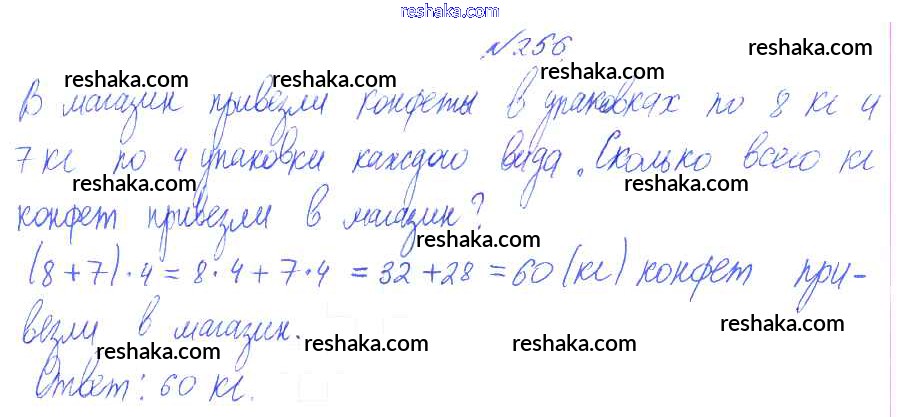 reshaka.com
№256
reshaka.com reshaka.com reshaka.com
В магазин привезли конфеты в упаковках по 8 кг и
7 кг по 4 упаковки каждого вида. Сколько всего кг
reshaka.com reshaka.com reshaka.com
конфет привезли в магазин?
reshaka.com
(8+7)·4=8·4+7·4=32+28=60(кг) конфет при-
везли в магазин.
reshaka.com reshaka.com reshaka.com reshaka.com
Ответ: 60 кг.